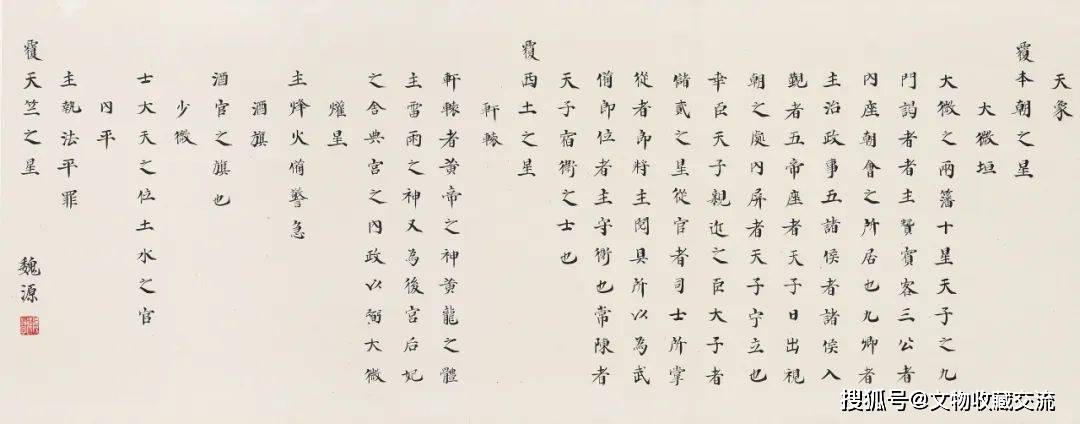 天象
覆本朝之星
大微垣
大微之兩籓十星天子之九
門謁者者主贊賓客三公者
內座朝會之所居也九卿者
主治政事五諸侯者諸侯入
覲者五帝座者天子日出視
朝之處內屏者天子宁立也
幸臣天子親近之臣大子者
儲貳之星從官者司士所掌
從者郎將主閱具所以為武
備郎位者主守衛也常陳者
天子宿衛之士也
覆西土之星
軒轅
軒轅者黃帝之神黃龍之體
主雷雨之神又為後宮后妃
之舍典宮之內政以弼大微
爟星
主烽火備警急
酒旗
酒官之旗也
少微
士大夫之位土水之官
內平
主執法平罪
覆天竺之星
魏源
搜狐号@文物收藏交流